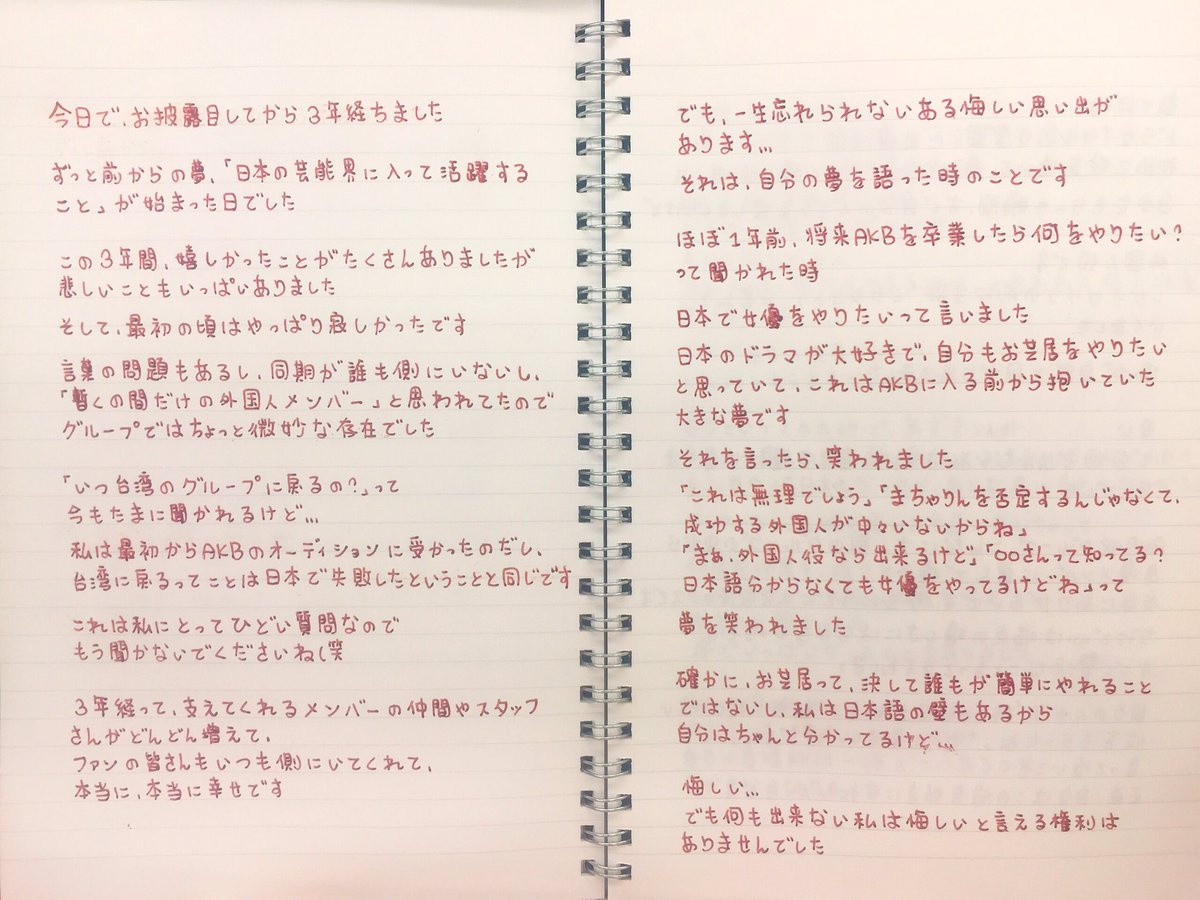 今日で、お披露目してから3年経ちました
ずっと前からの夢、「日本の芸能界に入って活躍する
こと」が始まった日でした
この3年間、嬉しかったことがたくさんありましたが
悲しいこともいっぱいありました
そして、最初の頃はやっぱり寂しかったです
言葉の問題もあるし、同期が誰も側にいないし、
「暫くの間だけの外国人メンバー」と思われてたので
グループではちょっと微妙な存在でした
「いつ台湾のグループに戻るの?」って
今もたまに聞かれるけど…
私は最初からAKBのオーディションに受かったのだし、
台湾に戻るってことは日本で失敗したということと同じです
これは私にとってひどい質問なので
もう聞かないでくださいね(笑
3年経って、支えてくれるメンバーの仲間やスタッフ
さんがどんどん増えて、
ファンの皆さんもいつも側にいてくれて、
本当に、本当に幸せです
でも、一生忘れられないある悔しい思い出が
あります…
それは、自分の夢を語った時のことです
ほぼ1年前、将来AKBを卒業したら何をやりたい?
って聞かれた時
日本で女優をやりたいって言いました
日本のドラマが大好きで、自分もお芝居をやりたい
と思っていて、これはAKBに入る前から抱いていた
大きな夢です
それを言ったら、笑われました
「これは無理でしょう」「まちゃりんを否定するんじゃなくて、
成功する外国人が中々いないからね」
「まぁ、外国人役なら出来るけど」「○○さんって知ってる?
日本語分からなくても女優をやってるけどね」って
夢を笑われました
確かに、お芝居って、決して誰もが簡単にやれること
ではないし、私は日本語の壁もあるから
自分はちゃんと分かってるけど…
悔しい…
でも何も出来ない私は悔しいと言える権利は
ありませんでした